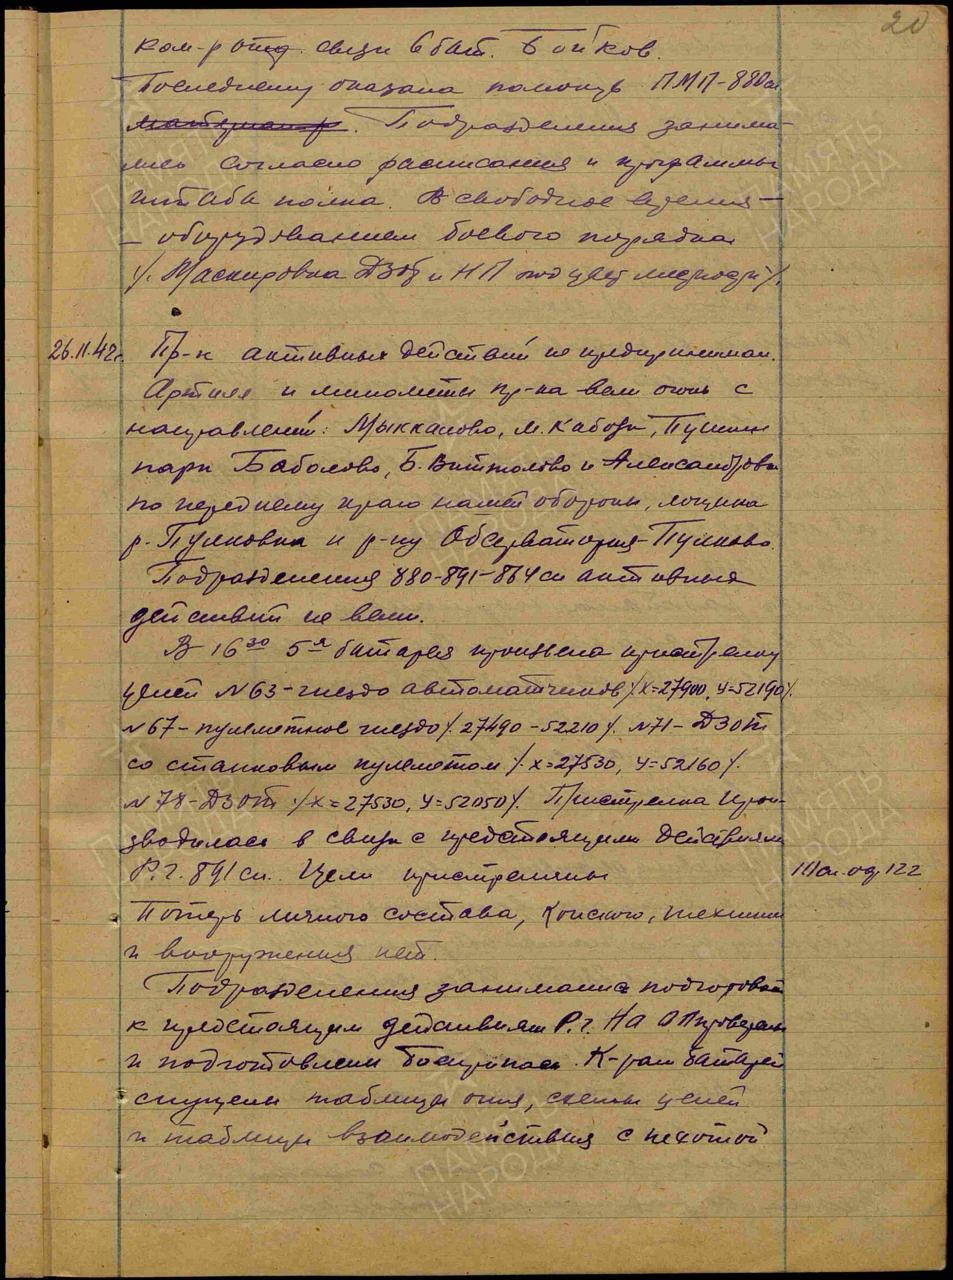 20
ком-р отд. связи 6 бат. Бойков.
Последнему оказана помощь ПМП-880 сп
Подразделения занима-
лись согласно расписания и программы
штаба полка. В свободное время —
— оборудованием боевого порядка
/. Маскировка ДЗОТ и НП под цвет местности /.
26.11.42г. Пр-к активных действий не предпринимал.
Артилл и минометы пр-ка вели огонь с
направлений: Мыкколово, М. Кабози, Пушкин
парк Баболово, Б. Виттолово и Александровка
по переднему краю нашей обороны, лощина
р. Пулковка и р-ну Обсерватория-Пулково.
Подразделения 880-891-864 сп активных
действий не вели.
В 16 30 5я батарея произвела пристрелку
целей №63-гнездо автоматчиков /. х=27900, у=52190 /.
№67-пулеметное гнездо /. 27490-52210 /. №71-ДЗОТ
со станковым пулеметом /. х=27530, у=52160 /.
№78-ДЗОТ /. х=27530, у=52050 /. Пристрелка прои-
зводилась в связи с предстоящими действиями
Р.г. 891 сп. Цели пристреляны
122
Потерь личного состава, конского, техники
и вооружения нет.
Подразделения занимались подготовкой
к предстоящим действиям Р.г. На ОП проверены
и подготовлены боеприпасы. К-рам батарей
спущены таблицы огня, схемы целей
и таблицы взаимодействия с пехотой
ПАМЯТЬ
НАРОДА